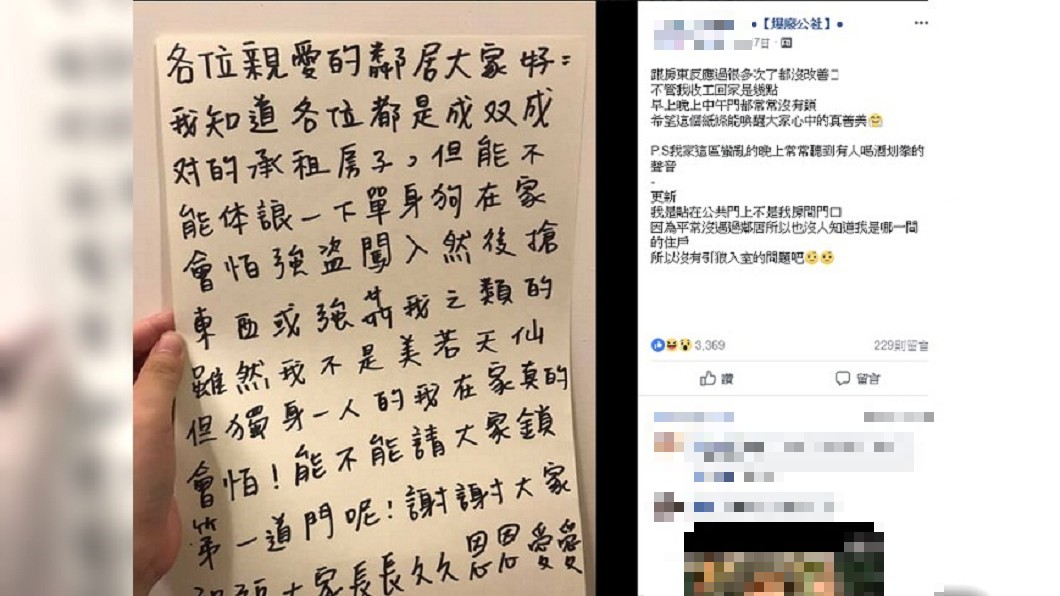 各位親愛的鄰居大家好：
我知道各位都是成双成
对的承租房子，但能不
能体諒一下單身狗在家
會怕強盜闖入然後搶
東西或強姦我之類的
雖然我不是美若天仙
但獨身一人的我在家真的
會怕！能不能請大家鎖
第一道門呢！謝謝大家
大家長長久久恩恩愛愛
•【爆廢公社】•
7日
跟房東反應過很多次了都沒改善
不管我收工回家是幾點
早上晚上中午門都常常沒有鎖
希望這個紙條能喚醒大家心中的真善美😊
P.S我家這區蠻亂的晚上常常聽到有人喝酒划拳的
聲音
-
更新
我是貼在公共門上不是我房間門口
因為平常沒遇過鄰居所以也沒人知道我是哪一間
的住戶
所以沒有引狼入室的問題吧
3,369
229則留言
讚
留言